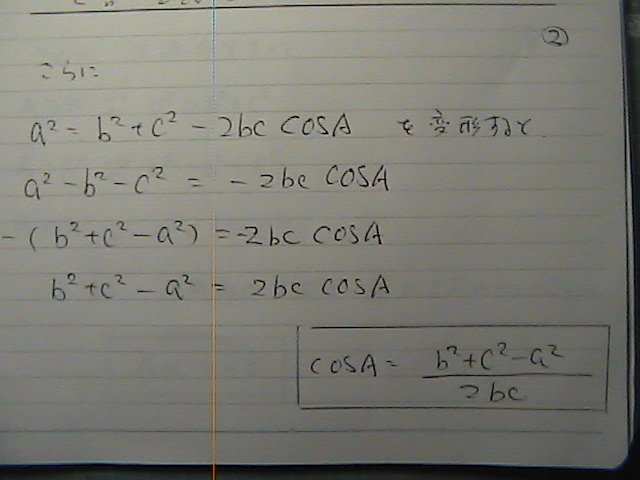 ②
さらに
a² = b² + c² - 2bc COSA を変形すると
a² - b² - c² = - 2bc COSA
- ( b² + c² - a² ) = -2bc COSA
b² + c² - a² = 2bc COSA
COSA = \frac{b² + c² - a²}{2bc}